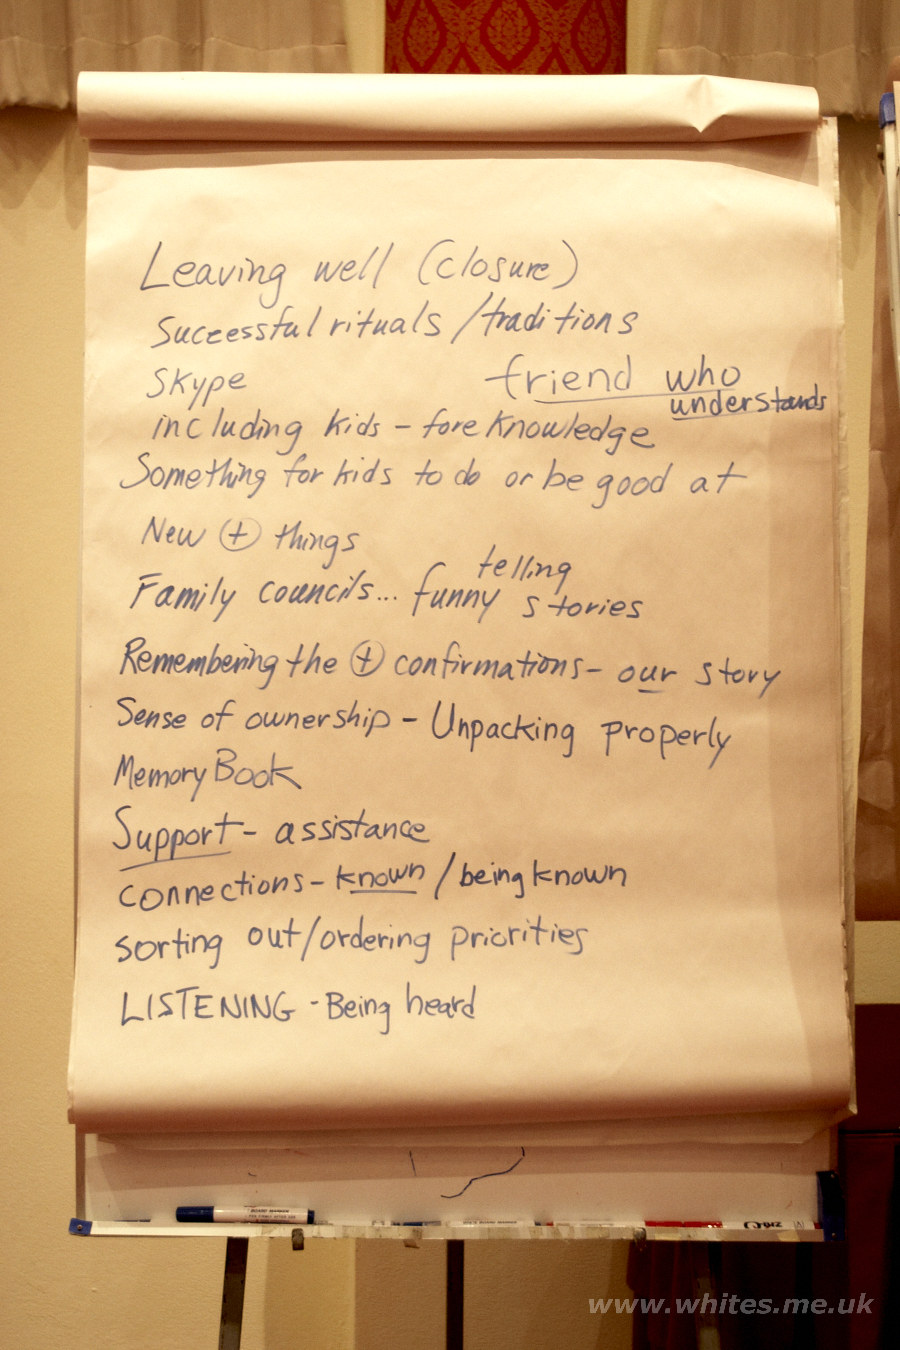 Leaving well (closure)
Successful rituals / traditions
Skype
friend who
understands
including kids - fore knowledge
Something for kids to do or be good at
New ⊕ things
telling
Family councils... funny stories
Remembering the ⊕ confirmations - our story
Sense of ownership - Unpacking properly
Memory Book
Support - assistance
connections - known / being known
sorting out/ordering priorities
LISTENING - Being heard
www.whites.me.uk